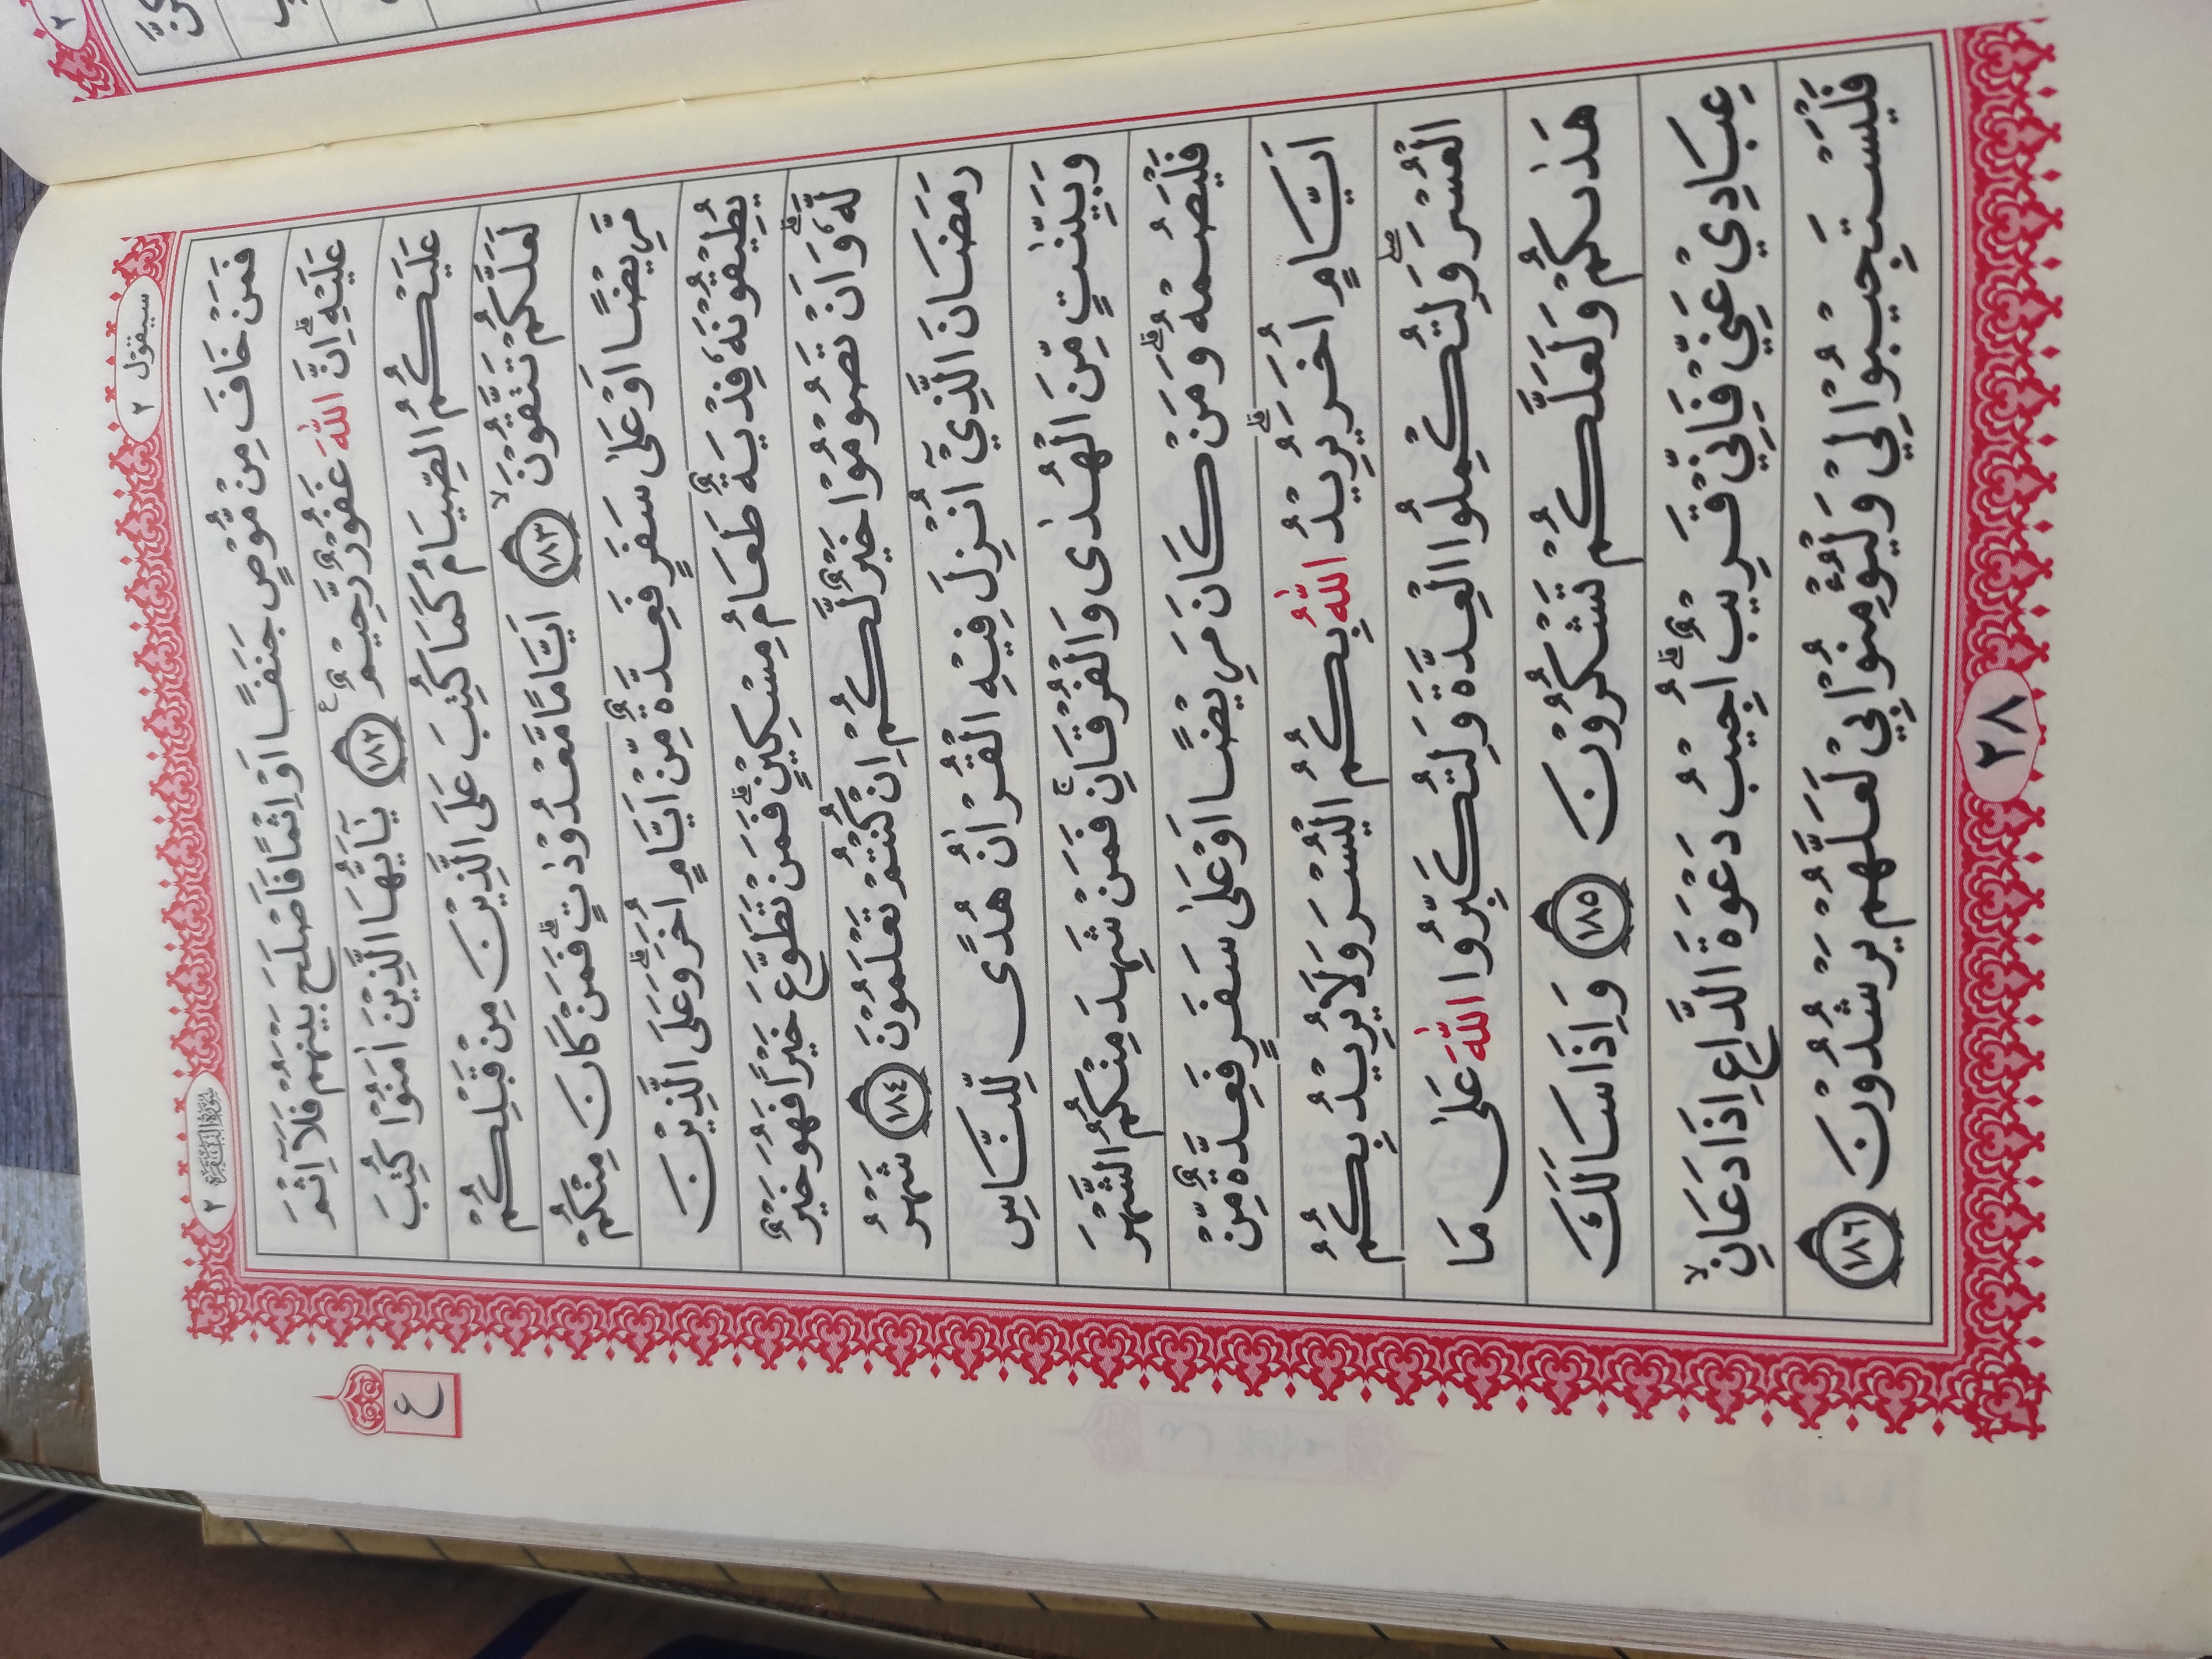 سيقول ٢
سورة البقرة ٢
فَمَنْ خَافَ مِنْ مُّوْصٍ جَنَفًا اَوْ اِثْمًا فَاَصْلَحَ بَيْنَهُمْ فَلَآ اِثْمَ
عَلَيْهِ ؕ اِنَّ اللّٰهَ غَفُوْرٌ رَّحِيْمٌ ﴿۱۸۲﴾ يٰۤاَيُّهَا الَّذِيْنَ اٰمَنُوْا كُتِبَ
عَلَيْكُمُ الصِّيَامُ كَمَا كُتِبَ عَلَى الَّذِيْنَ مِنْ قَبْلِكُمْ
لَعَلَّكُمْ تَتَّقُوْنَ ۙ ﴿۱۸۳﴾ اَيَّامًا مَّعْدُوْدٰتٍ ؕ فَمَنْ كَانَ مِنْكُمْ
مَّرِيْضًا اَوْ عَلٰى سَفَرٍ فَعِدَّةٌ مِّنْ اَيَّامٍ اُخَرَ ؕ وَعَلَى الَّذِيْنَ
يُطِيْقُوْنَهٗ فِدْيَةٌ طَعَامُ مِسْكِيْنٍ ؕ فَمَنْ تَطَوَّعَ خَيْرًا فَهُوَ خَيْرٌ
لَّهٗ ؕ وَاَنْ تَصُوْمُوْا خَيْرٌ لَّكُمْ اِنْ كُنْتُمْ تَعْلَمُوْنَ ﴿۱۸٤﴾ شَهْرُ
رَمَضَانَ الَّذِيْۤ اُنْزِلَ فِيْهِ الْقُرْاٰنُ هُدًى لِّلنَّاسِ
وَبَيِّنٰتٍ مِّنَ الْهُدٰى وَالْفُرْقَانِ ۚ فَمَنْ شَهِدَ مِنْكُمُ الشَّهْرَ
فَلْيَصُمْهُ ؕ وَمَنْ كَانَ مَرِيْضًا اَوْ عَلٰى سَفَرٍ فَعِدَّةٌ مِّنْ
اَيَّامٍ اُخَرَ ؕ يُرِيْدُ اللّٰهُ بِكُمُ الْيُسْرَ وَلَا يُرِيْدُ بِكُمُ
الْعُسْرَ ۖ وَلِتُكْمِلُوا الْعِدَّةَ وَلِتُكَبِّرُوا اللّٰهَ عَلٰى مَا
هَدٰىكُمْ وَلَعَلَّكُمْ تَشْكُرُوْنَ ﴿۱۸٥﴾ وَاِذَا سَاَلَكَ
عِبَادِيْ عَنِّيْ فَاِنِّيْ قَرِيْبٌ ؕ اُجِيْبُ دَعْوَةَ الدَّاعِ اِذَا دَعَانِ ۙ
فَلْيَسْتَجِيْبُوْا لِيْ وَلْيُؤْمِنُوْا بِيْ لَعَلَّهُمْ يَرْشُدُوْنَ ﴿۱۸٦﴾
ع
٢٨